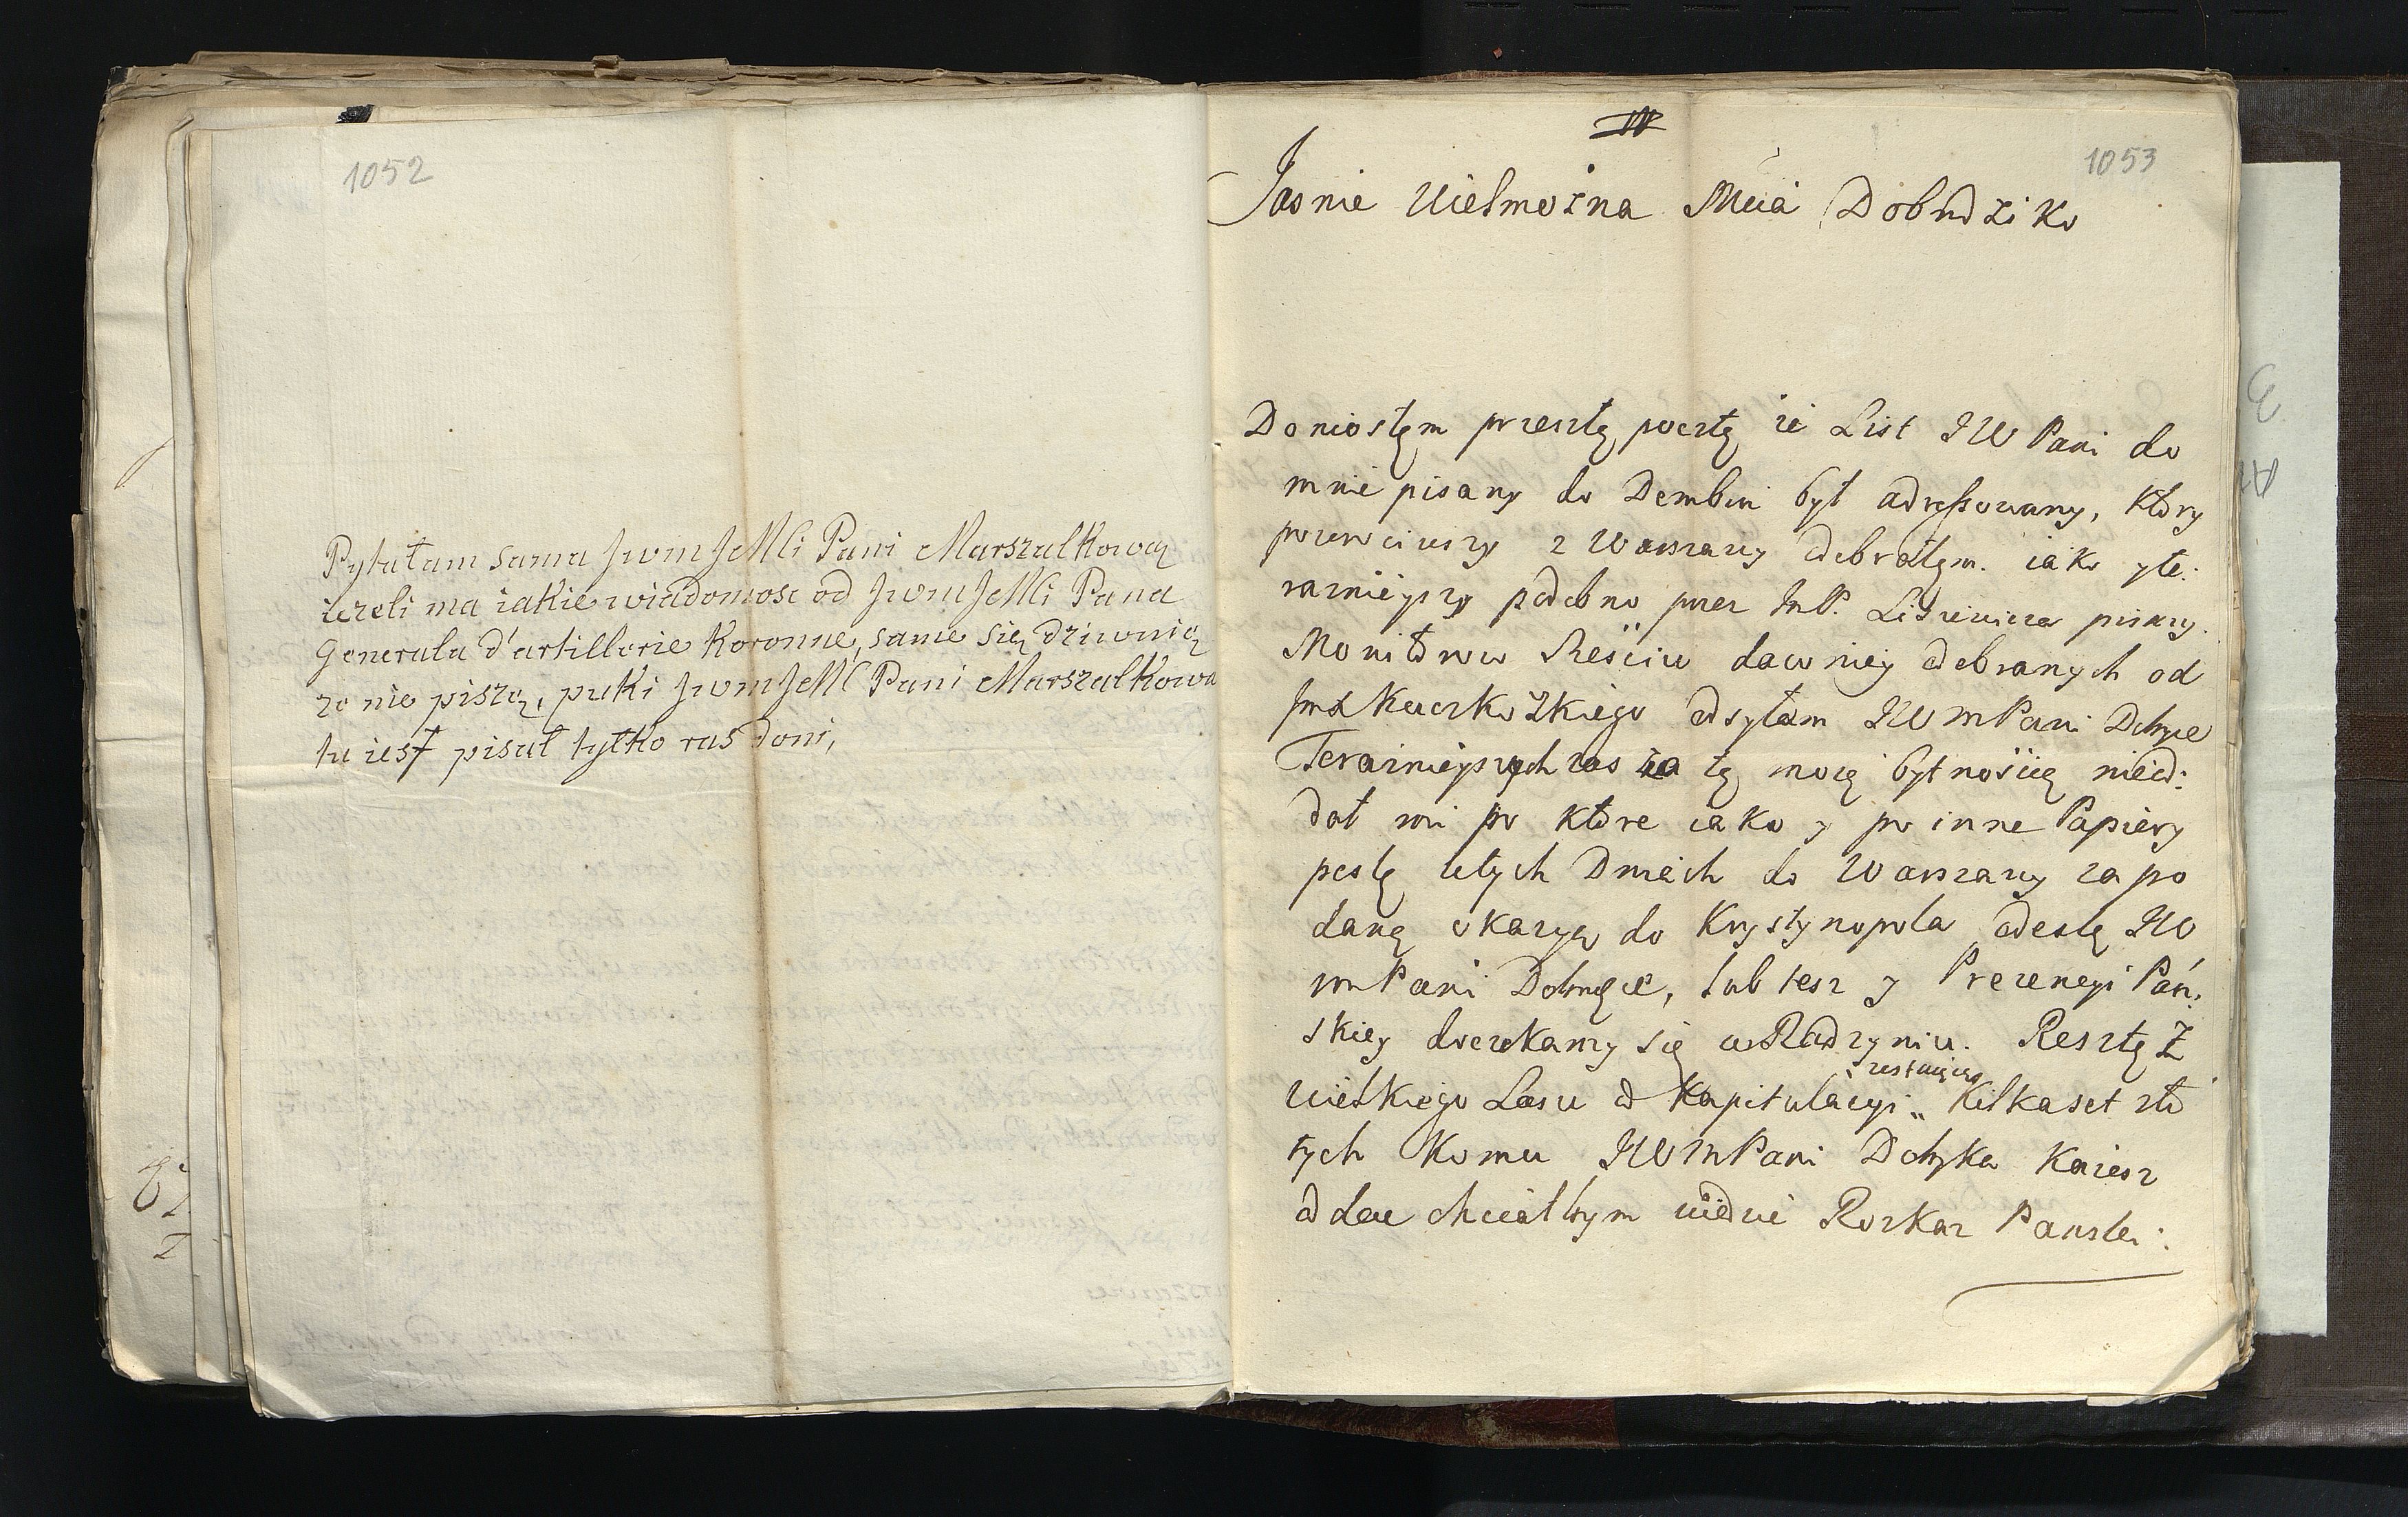 1052
Pytałam sama JwmJeMci Pani Marszalkowaÿ
ieżeli ma iakie wiadomosc od JwmJeMci Pana
Generala d'artillerie Koronne, same się dziwuią
że nie piszą, puki JwmJeMC Pani Marszalkowa
tu iest pisał tylko ras doni,
1053
Jasnie Wielmożna Mcia Dobrodziko
Doniosłęm przeszłą pocztą że List JW Pani do
mnie pisany do Dembin był adressowany, ktory
powrociwszy z Warszawy odebrałęm. iako y te:
raznieyszy podobno przez JmP. pisany.
Monitorow Resciu dawniey odebranych od
odsyłam JWmPani Dobrce
Teraznieyszych zas za tą moią bytnoscią nieod:
dał mi po ktore iako y po inne Papiery
poslę wtych Dniach do Warszawy zapo
daną okazyą do Krystynopola odeslę JW
mPani Dobrce, lub tesz y Prezencyi Pań:
skiey doczekamy się w Radzyniu. Resztę Z
wielkiego Lasu od Kapitulacyi „ restuiącą Kilkaset zło
tych Komu JWmPani Dobrka Każesz
oddac chciałbym wiedzic Rozkaz Panski.